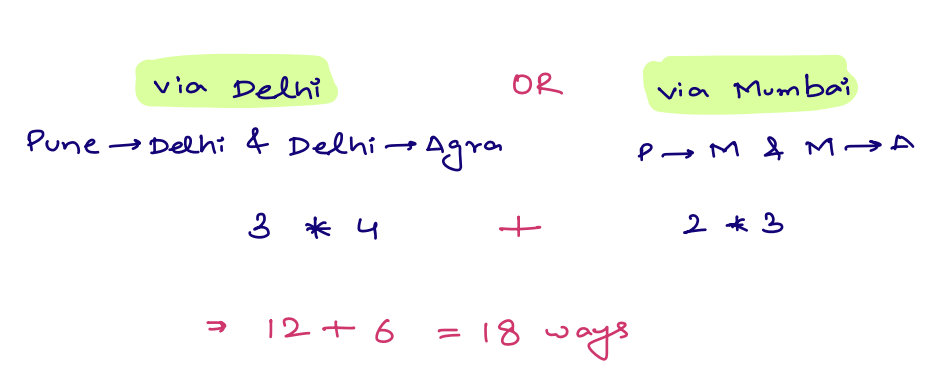 via Delhi OR via Mumbai
Pune → Delhi & Delhi → Agra P → M & M → A
3 * 4 + 2 * 3
⇒ 12 + 6 = 18 ways